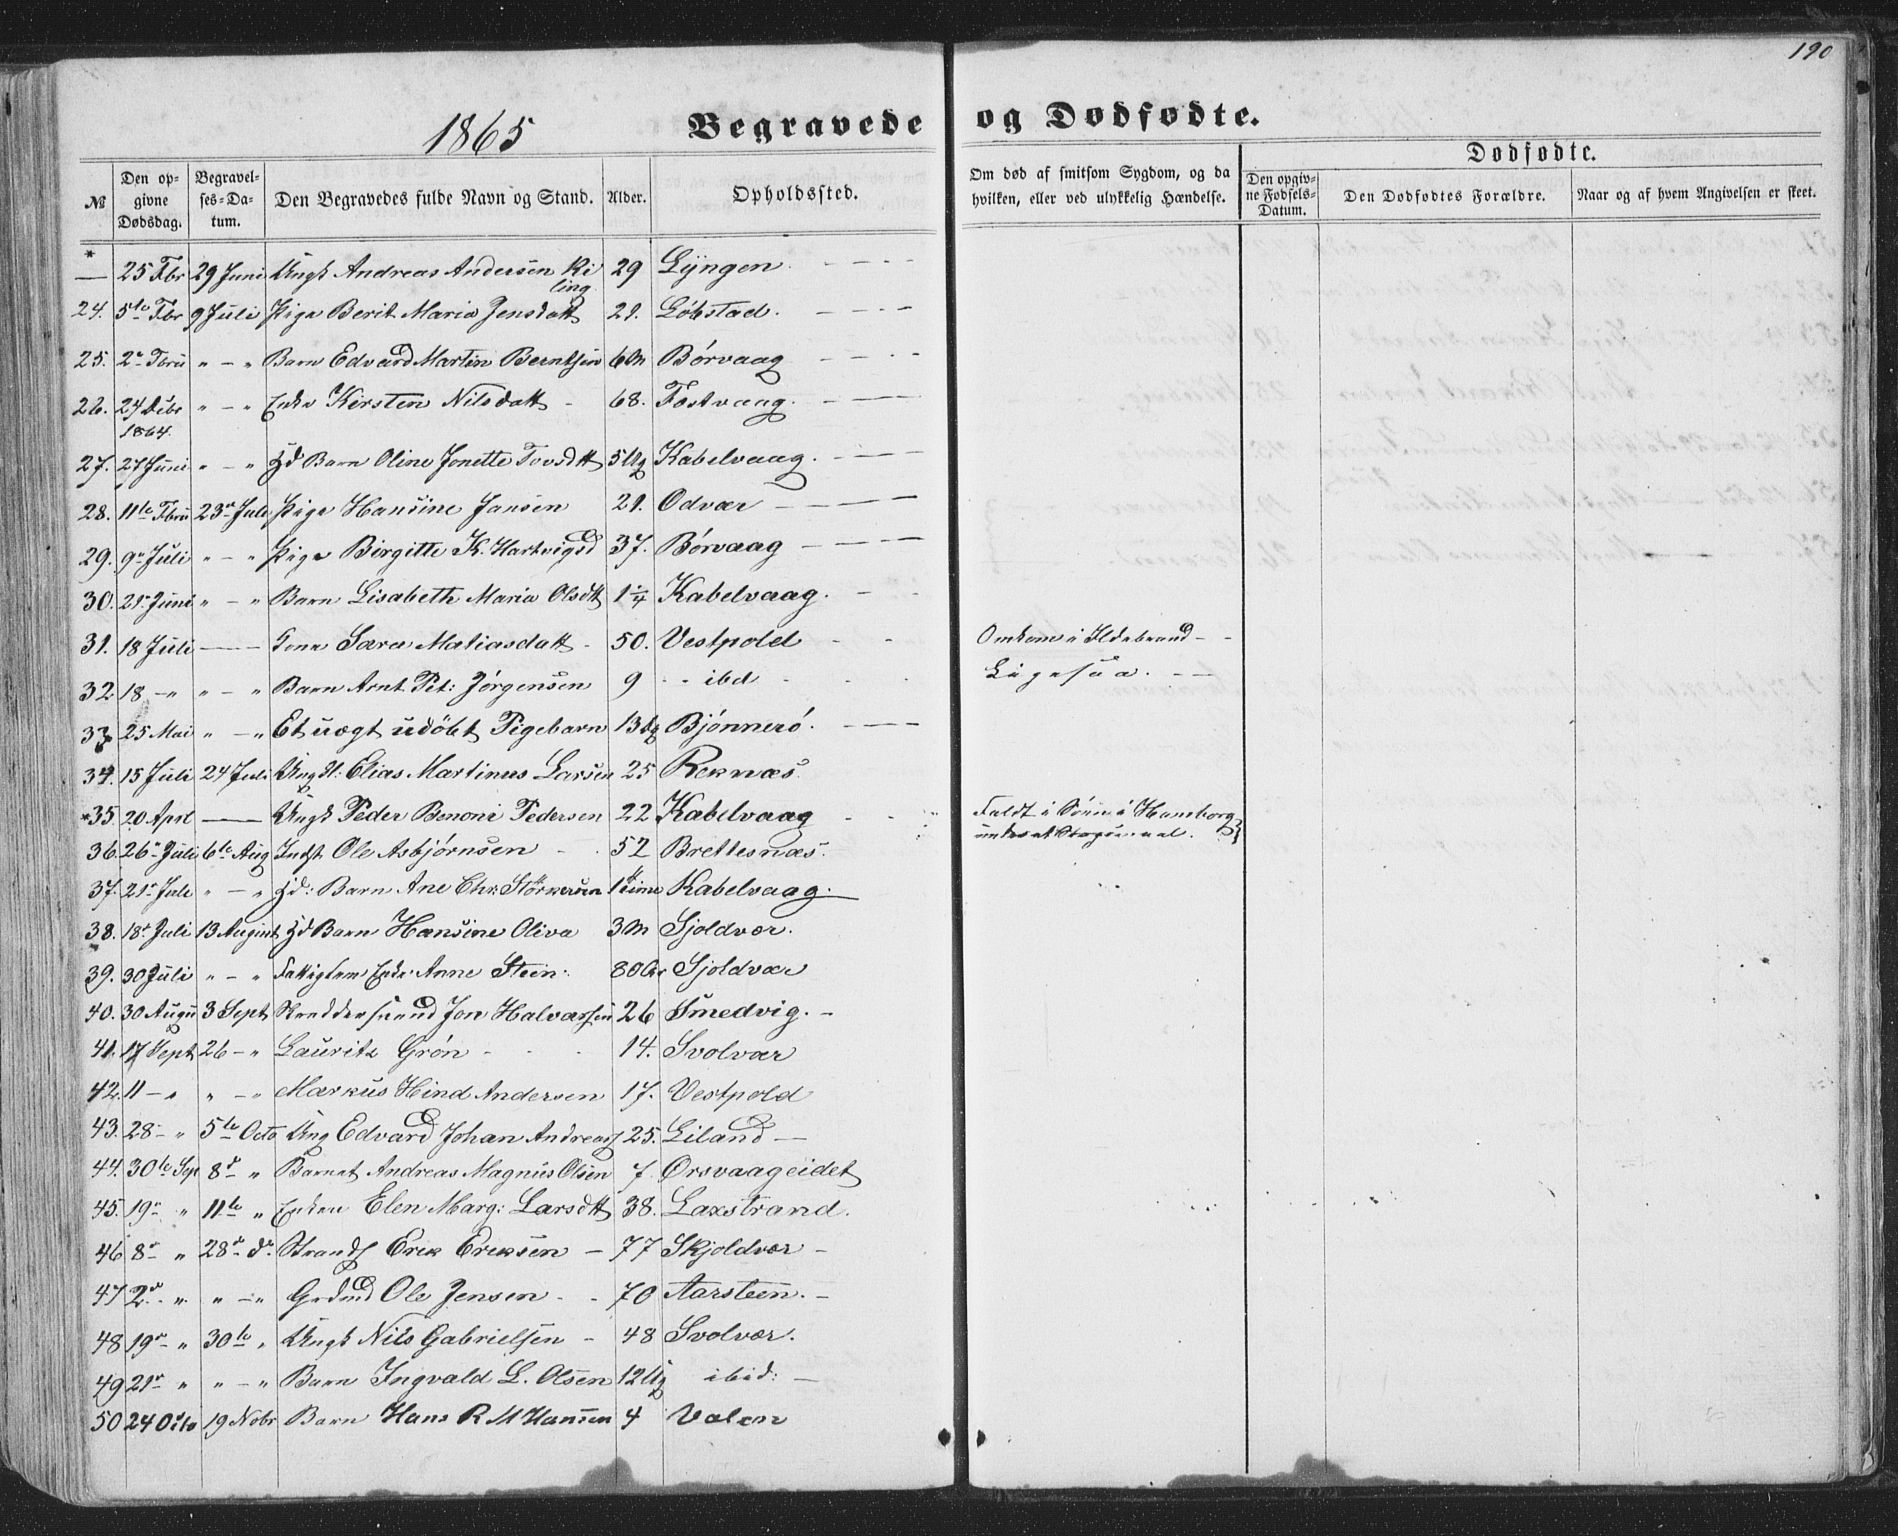 190
1865 Begravede og Dødfødte.
Dødfødte.
№ Den opgivne Dødsdag. Begravelses-Datum. Den Begravedes fulde Navn og Stand. Alder. Opholdssted. Om død af smitsom Sygdom, og da hvilken, eller ved ulykkelig Hændelse. Den opgivne Fødsels-Datum. Den Dødfødtes Forældre. Naar og af hvem Angivelsen er skeet.
* — 25 Fbr 29 Juni Ungk Andreas Andersen Kiling 29 Lyngen
24. 5te Fbr 9 Juli Pige Berit Maria Jensdatt 21. Löbstad.
25. 2n Fbru " — " Barn Edvard Martin Berntsen 6 M Börvaag
26. 24 Decbr 1864. " — " Enke Kirsten Nilsdatt 68. Fostvaag.
27. 27 Juni " — " Hd Barn Oline Jonette Tovsdtt 5 Ug Kabelvaag.
28. 11te Fbru 23n Juli Pige Hansine Jansen 21. Odvær
29. 9n Juli " — " Pige Birgitte K. Hartvigsd 37. Börvaag
30. 21n Juni " — " Barn Lisabeth Maria Olsdtt 1¼ Kabelvaag.
31. 18 Juli — Kone Sara Matiasdatt 50. Vestpold Omkom i Ildebrand
32 18 — " " — " Barn Arnt Pet: Jörgensen 9 ibd Ligesaa.
33 25 Mai " — " Et uægt udöbt Pigebarn 13 Dg Bjönnerö.
34. 15 Juli 24 Juli Ungk: Elias Martinus Larsen 25 Reknæs.
*35 20 April — Ungk Peder Benoni Pedersen 22 Kabelvaag Faldt i Söen i Hamborg
36. 26n Juli 6te Aug Indst Ole Asbjörnsen 52 Brettesnæs.
37. 21n Juli " — " Hd: Barn Ane Chr: Störkersen 1 Time Kabelvaag.
38. 18n Juli 13 August Hd Barn Hansine Oliva 3 M Sjoldvær.
39. 30 Juli " — " Fattiglem Enke Anne Stein: 80 Aar Sjoldvær
40. 30 Augu 3 Sept Skreddersvend Jon Halvorsen 26 Smedvig.
41. 17 Sept 26 — " Lauritz Grön 14. Svolvær
42. 11 — " " — " Markus Hind Andersen 17. Vestpold
43. 28 — " 5te Octo Ung Edvard Johan Andreas 25. Liland
44. 30te Sep 8n " Barnet Andreas Magnus Olsen 7 Örsvaageidet
45. 19n " 11te " Enken Elen Marg: Larsdtt 38. Laxstrand.
46 8n " 28n do Strands Erik Eriksen 77 Skjoldvær
47 2n " " — " Grdmd Ole Jensen 70 Aarsteen.
48 19n " 30te " Ungk Nils Gabrielsen 48 Svolvær.
49 21n " " — " Barn Ingvald L. Olsen 12 Ug ibid:
50 24 Octo 19 Nobr Barn Hans R M Hansen 4 Valen